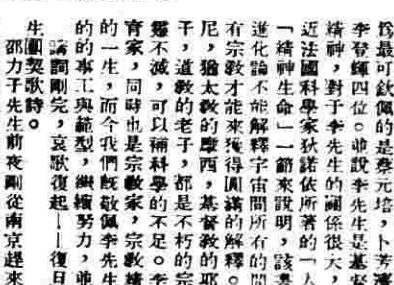 爲最可欽佩的是蔡元培，卜芳濟
李登輝四位。並說李先生是基督
精神，對于李先生的關係很大，
近法國科學家狄諾依所著的「人
「精神生命」一節來說明，該書
進化論不能解釋宇宙間所有的問
有宗教才能來獲得圓滿的解釋。
尼，猶太教的摩西，基督教的耶
干，道教的老子，都是不朽的宗
雖不滅，可以補科學的不足。李
育家，同時也是宗教家，宗教精
的一生，而今我們旣敬佩李先生
的的事工與範型，繼續努力，並
講詞剛完，哀歌復起——復旦
生團契歌詩。
邵力子先生前夜剛從南京趕來